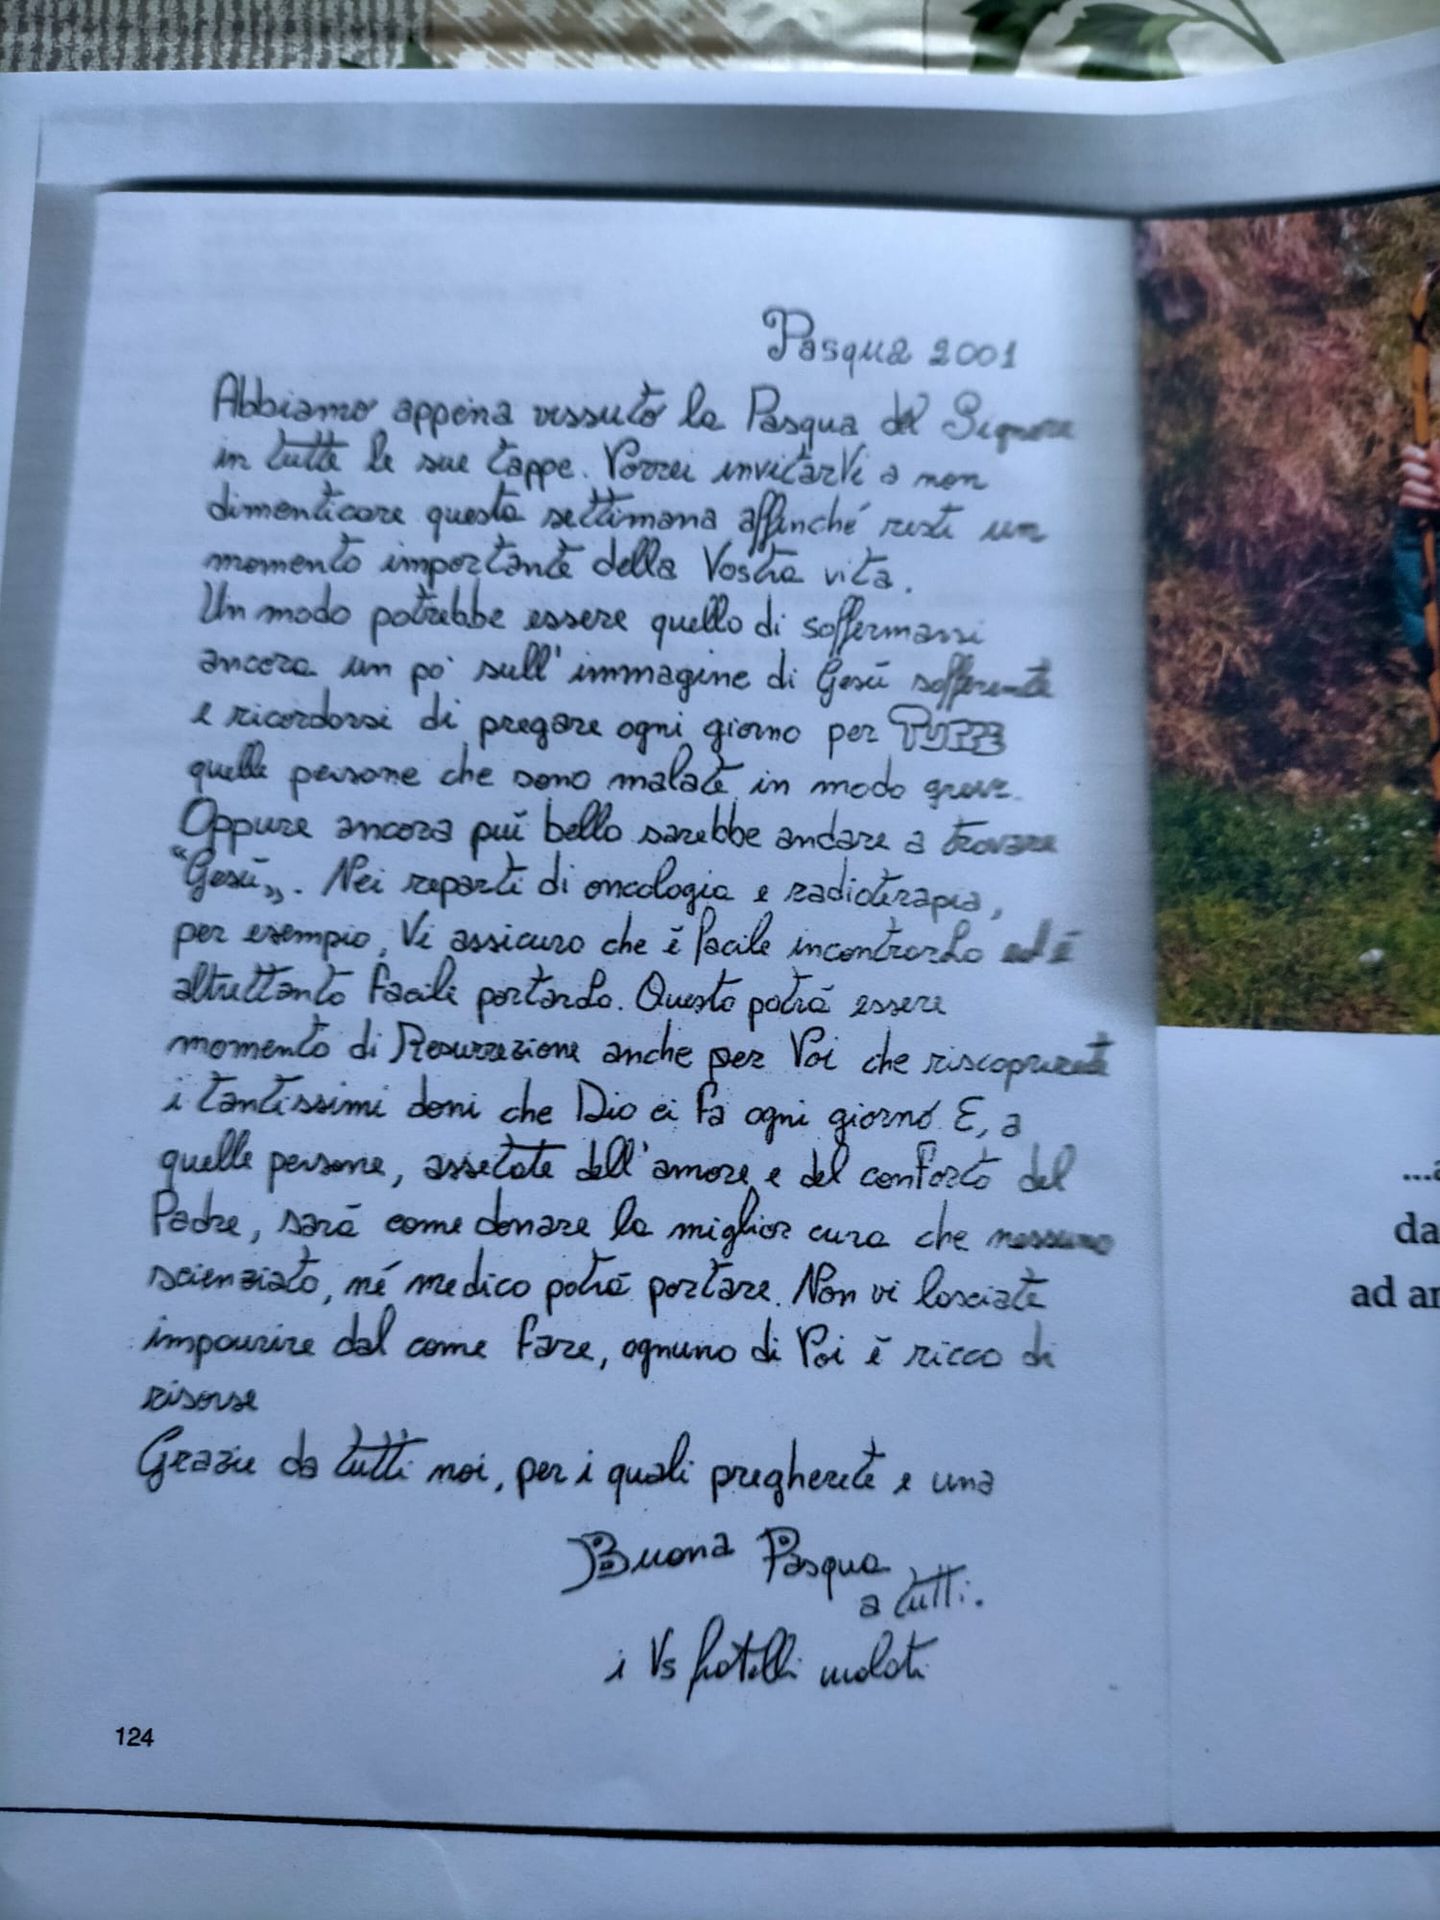 Pasqua 2001
Abbiamo appena vissuto la Pasqua del Signore
in tutte le sue tappe. Vorrei invitarVi a non
dimenticare questa settimana affinché resti un
momento importante della Vostra vita.
Un modo potrebbe essere quello di soffermarsi
ancora un po' sull'immagine di Gesù sofferente
e ricordarsi di pregare ogni giorno per TUTTE
quelle persone che sono malate in modo grave.
Oppure ancora più bello sarebbe andare a trovare
"Gesù". Nei reparti di oncologia e radioterapia,
per esempio, Vi assicuro che è facile incontrarLo ed è
altrettanto facile portarLo. Questo potrà essere
momento di Resurrezione anche per Voi che riscoprirete
i tantissimi doni che Dio ci fa ogni giorno. E, a
quelle persone, assetate dell'amore e del conforto del
Padre, sarà come donare la miglior cura che nessuno
scienziato, né medico potrà portare. Non vi lasciate
impaurire dal come fare, ognuno di Voi è ricco di
risorse
Grazie da tutti noi, per i quali pregherete e una
Buona Pasqua
a tutti.
i Vs fratelli malati
124
...a
da
ad an